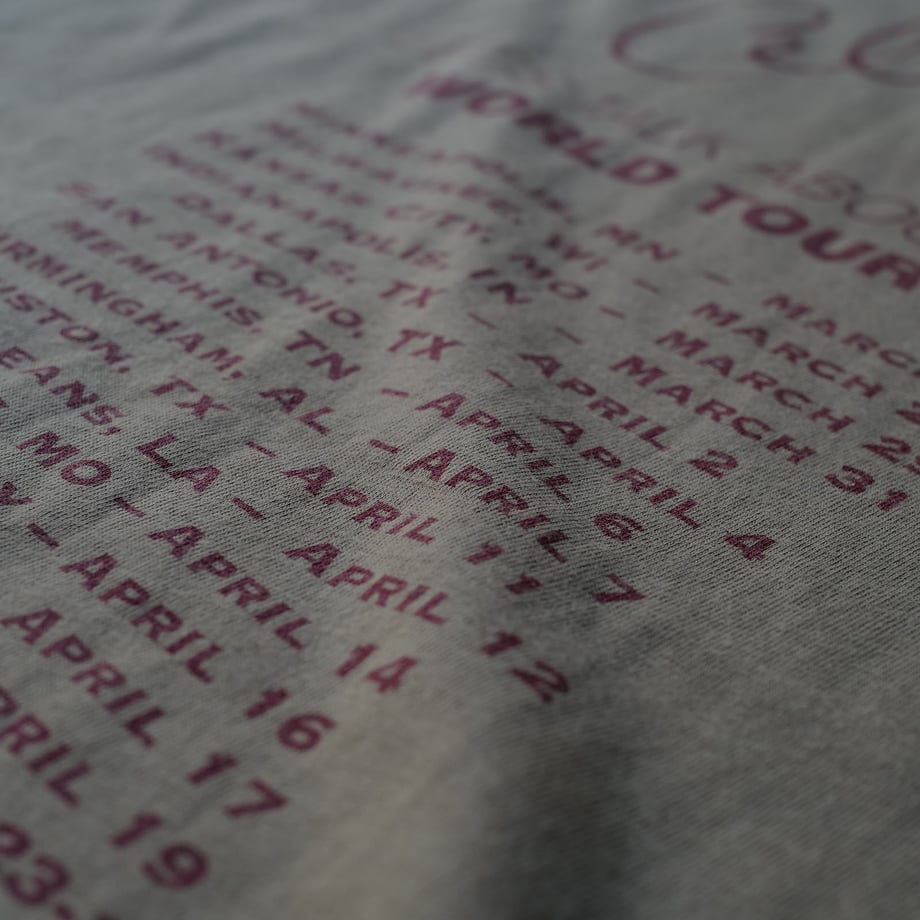 WORLD TOUR
MN – MARCH
MILWAUKEE, WI – MARCH
KANSAS CITY, MO – MARCH 29
INDIANAPOLIS, IN – MARCH 31
DALLAS, TX – APRIL 2
SAN ANTONIO, TX – APRIL 4
MEMPHIS, TN – APRIL 6
RMINGHAM, AL – APRIL 7
USTON, TX – APRIL 11
EANS, LA – APRIL 12
MO – APRIL 14
Y – APRIL 16
APRIL 17
PRIL 19
23-